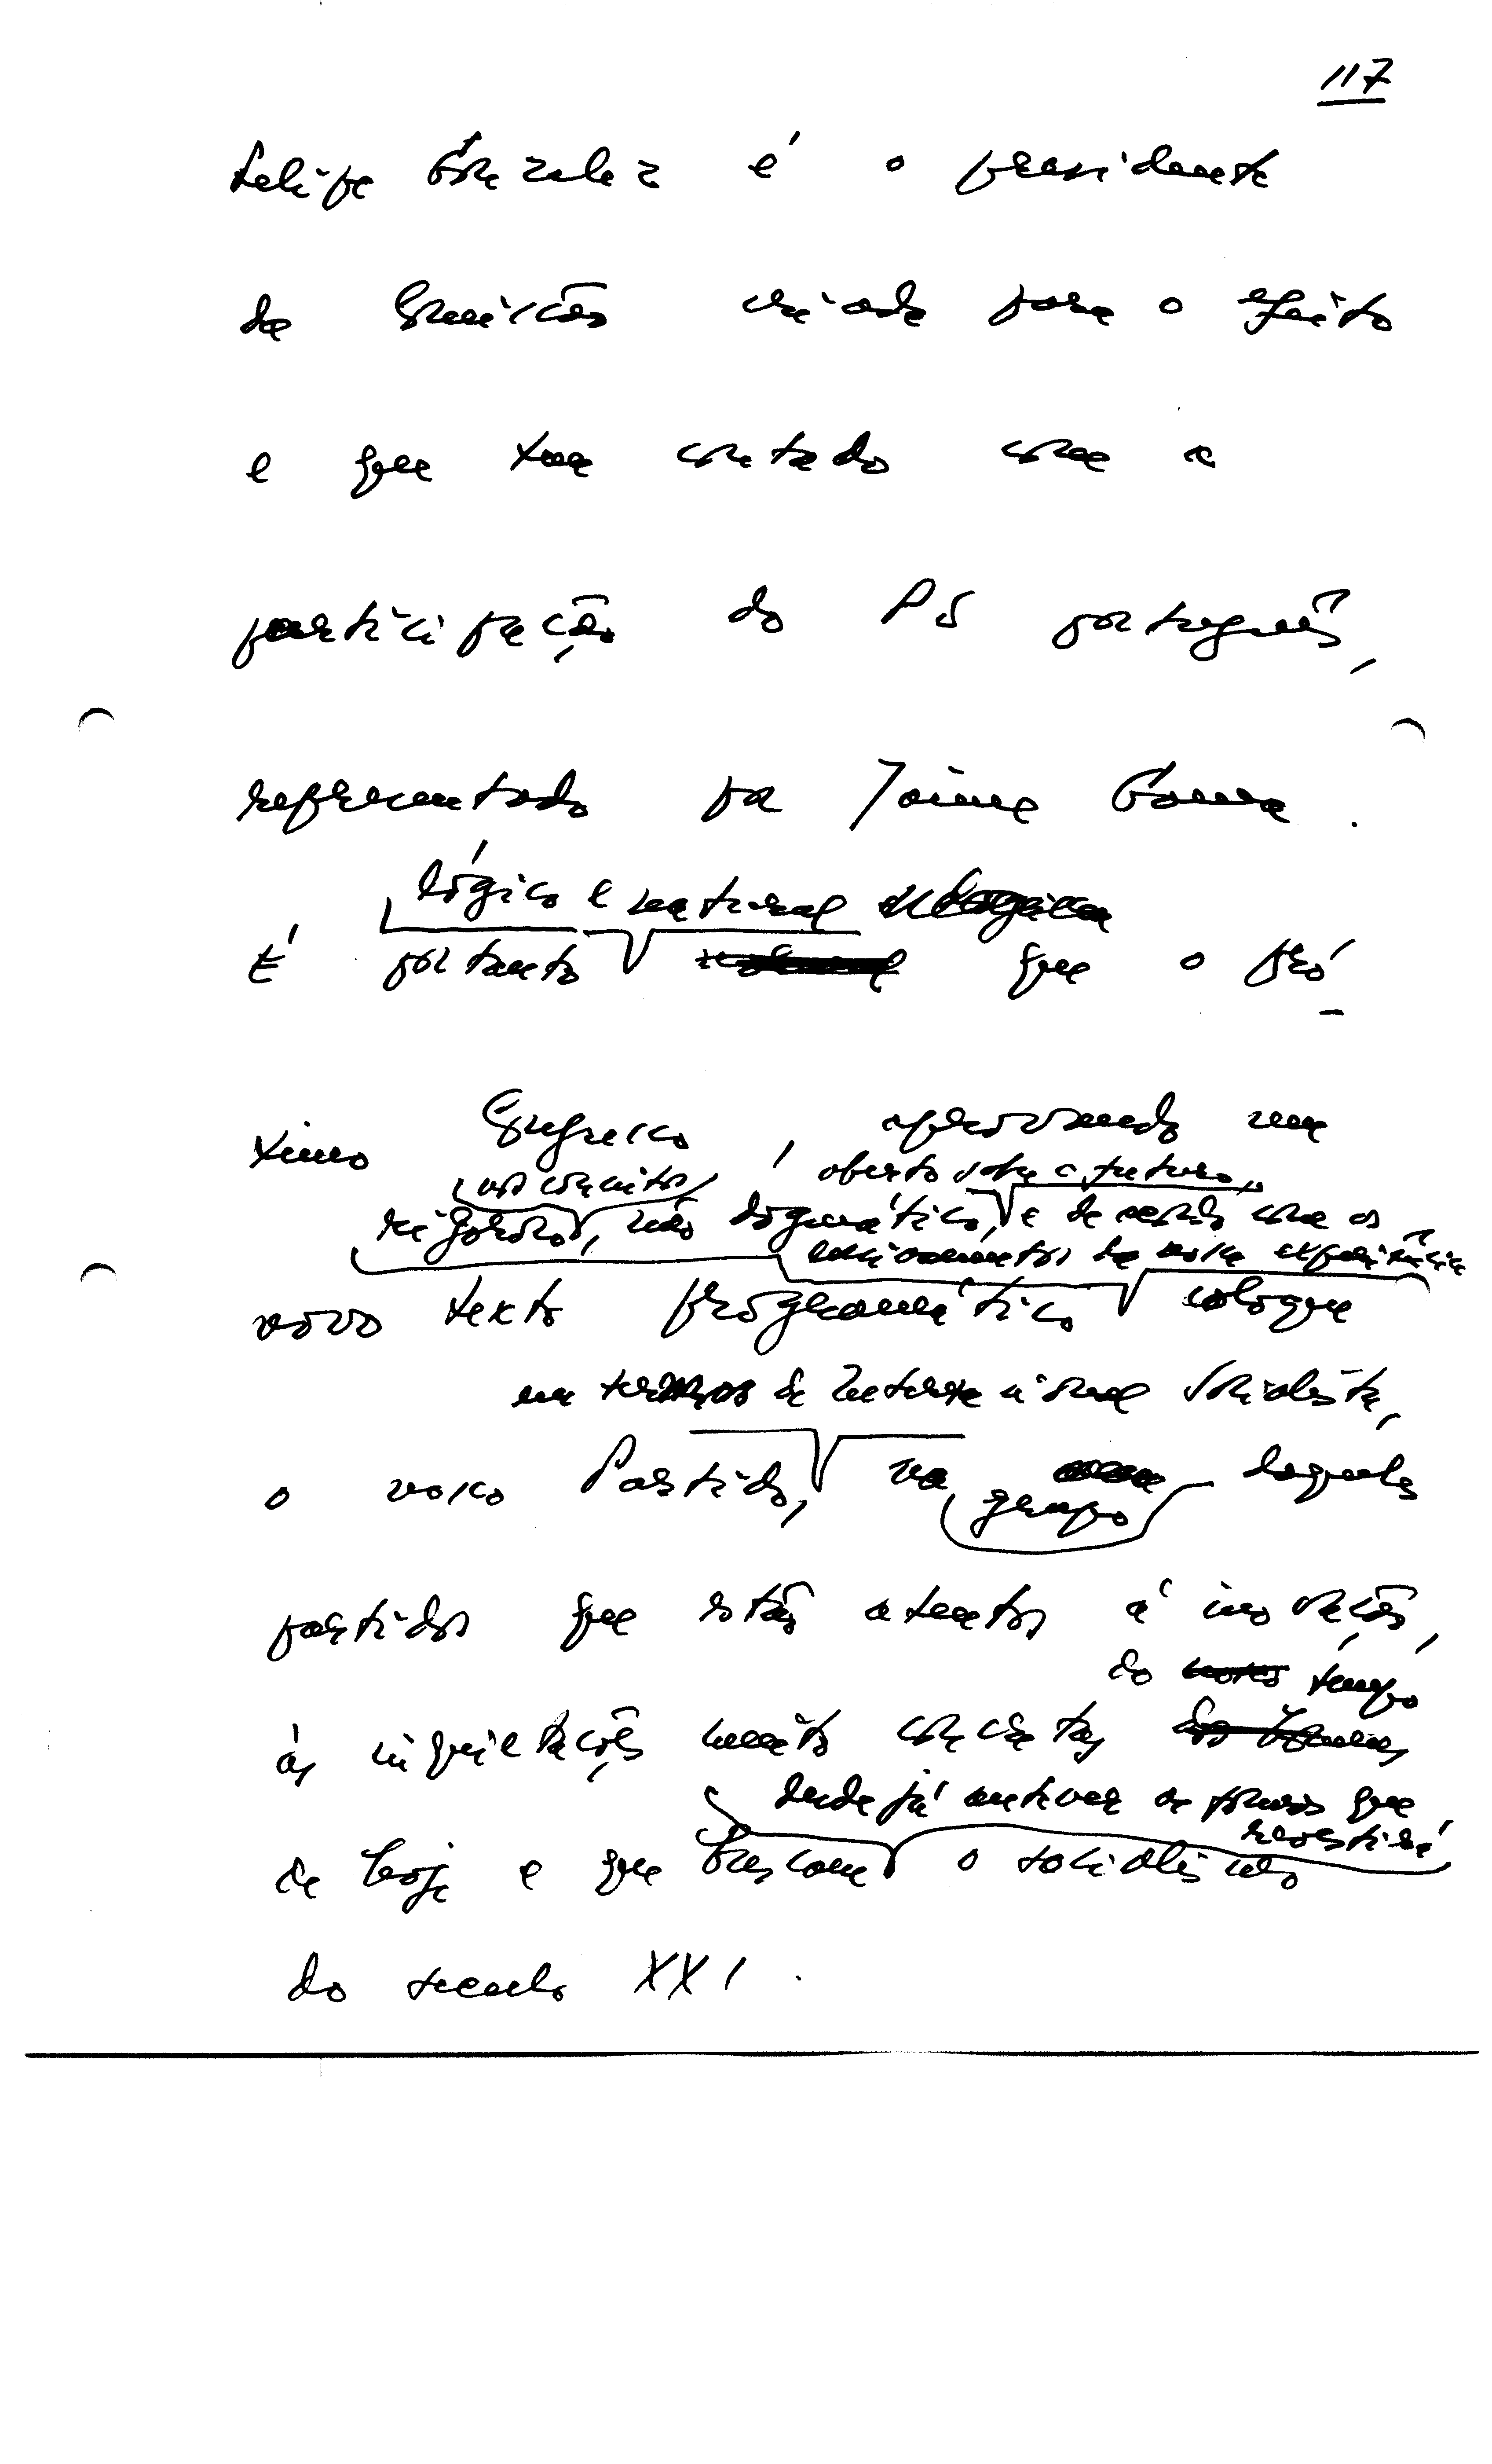 117
Felipe Gonzalez é o presidente
da Comissão criada para o efeito
e que tem contado com a
participação do PS português,
representado por Jaime Gama.
lógico e natural
É portanto que o pró-
ximo Congresso, aprovando um
nos conceitos aberto sobre o futuro,
rigoroso, não dogmático, e de acordo com os
ensinamentos da nossa experiência
novo texto programático coloque
em termos de Internacional Socialista,
o nosso Partido, no daqueles
grupo
partidos que estão atentos à inovação,
do tempo
às inquietações muito concretas
desde já antever as formas que
revestirá
de hoje e que buscam o socialismo
do seculo XXI.